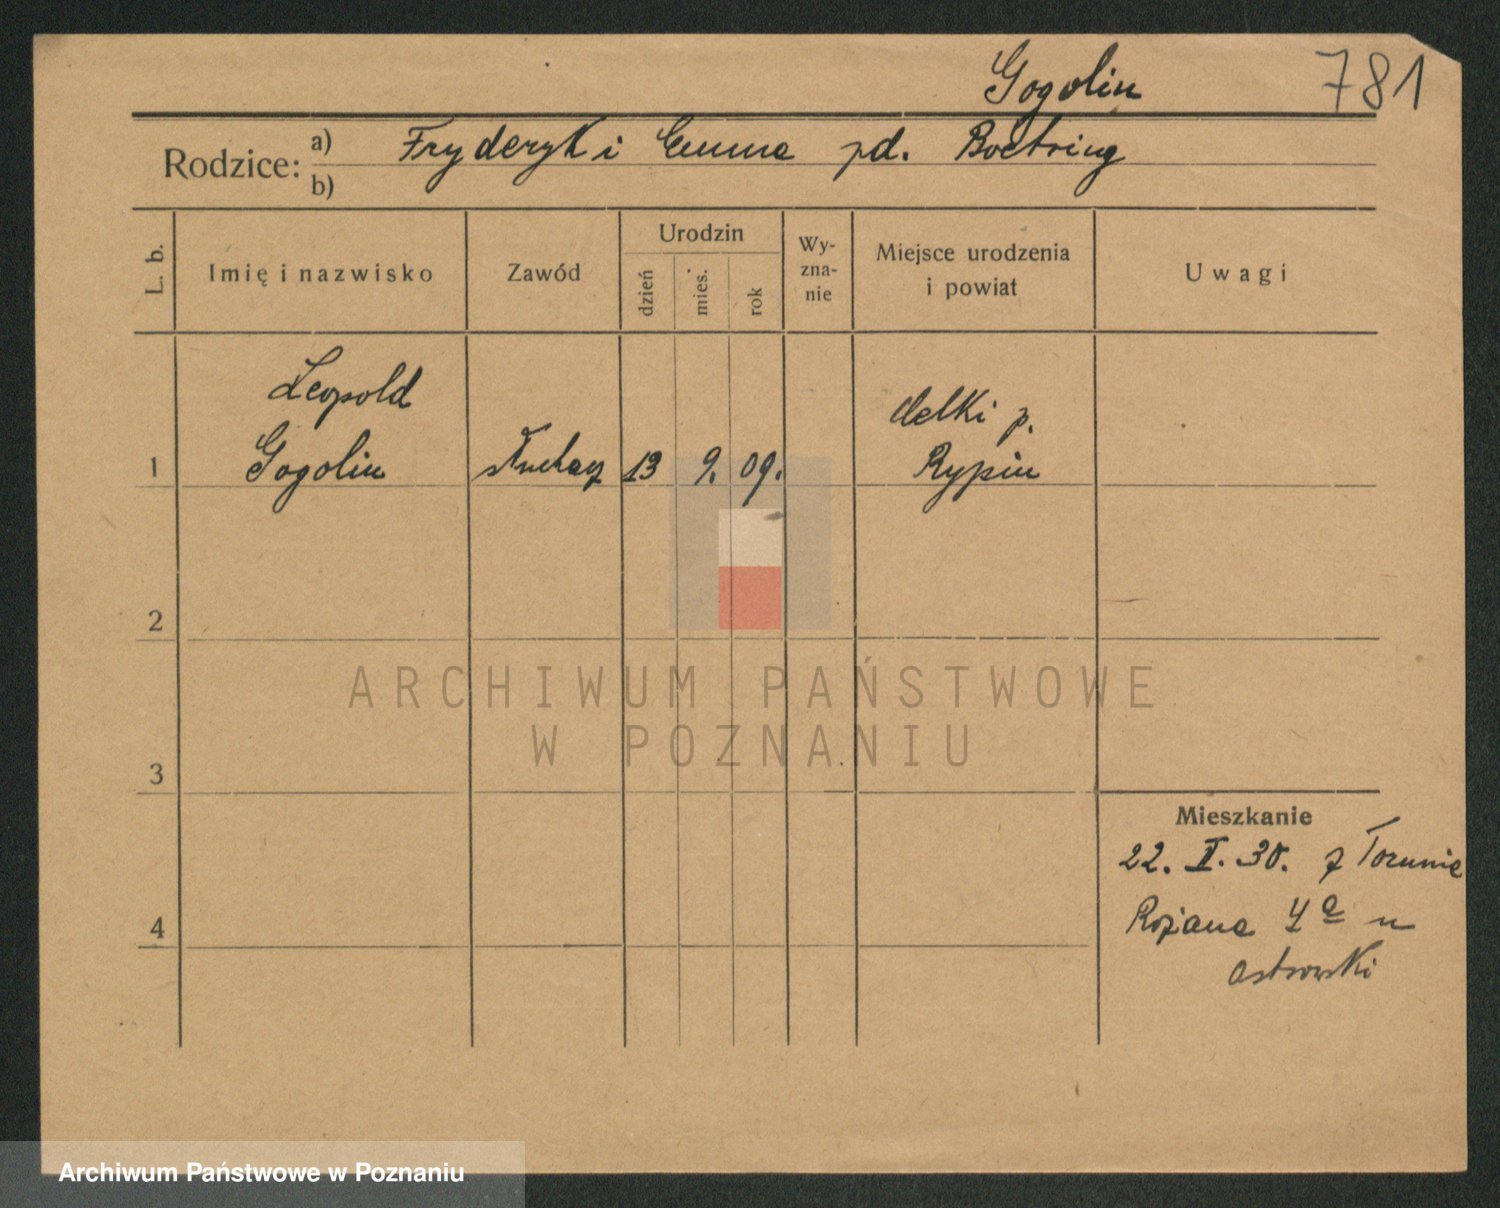 Gogolin 781
Rodzice: a) Fryderyk i Emma pd. Boetring
b)
L. b. Imię i nazwisko Zawód Urodzin Wy-zna-nie Miejsce urodzenia i powiat Uwagi
dzień mies. rok
Leopold
1 Gogolin słuchacz 13 9. 09. Rypin
2
3
4
Mieszkanie
22. II. 30. z Torunia
Różana 4 a u
Ostrowski
ARCHIWUM PAŃSTWOWE
W POZNANIU
Archiwum Państwowe w Poznaniu